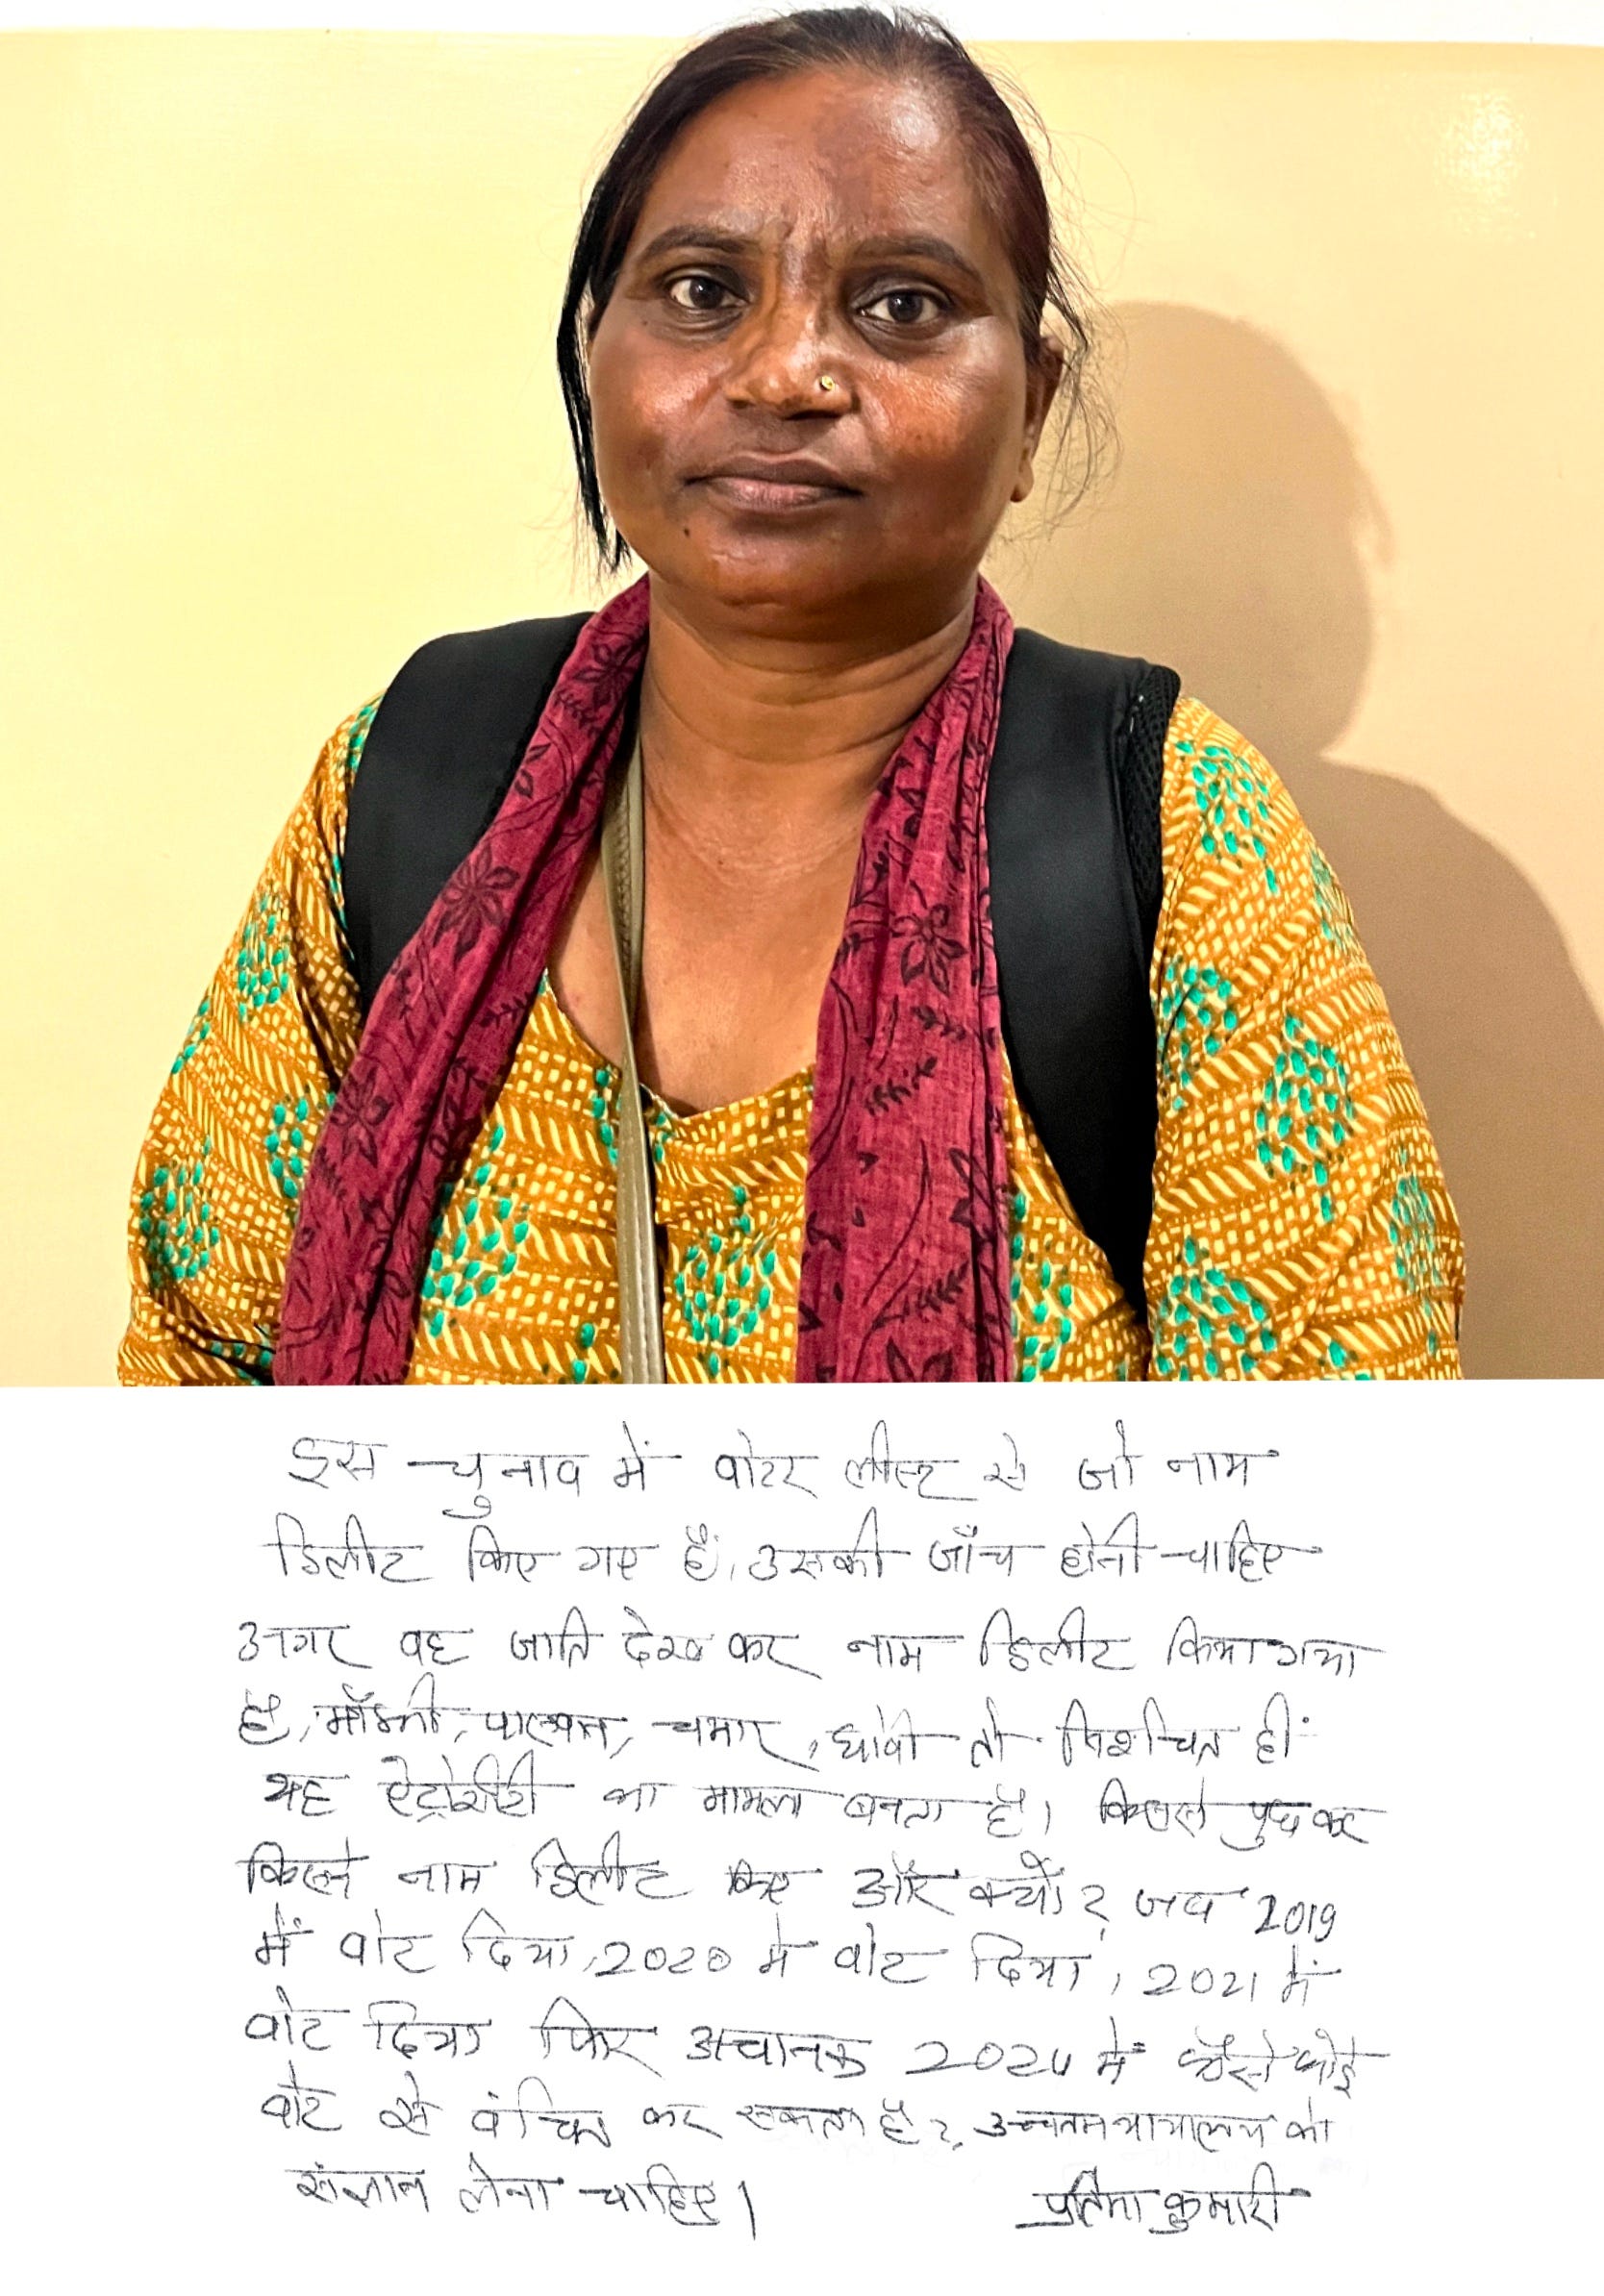 इस चुनाव में वोटर लीस्ट से जो नाम
डिलीट किए गए हैं, उसकी जाँच होनी चाहिए
अगर वह जाति देख कर नाम डिलीट किया गया
है, चमार, धोबी तो निश्चित ही
यह का मामला बनता है। किससे पुछ कर
किसने नाम डिलीट किए और क्यों? जब 2019
में वोट दिया, 2020 में वोट दिया, 2021 में
वोट दिया फिर अचानक 2024 में कैसे कोई
वोट से वंचित कर सकता है?, उच्चतम न्यायालय को
संज्ञान लेना चाहिए।
प्रतिमा कुमारी